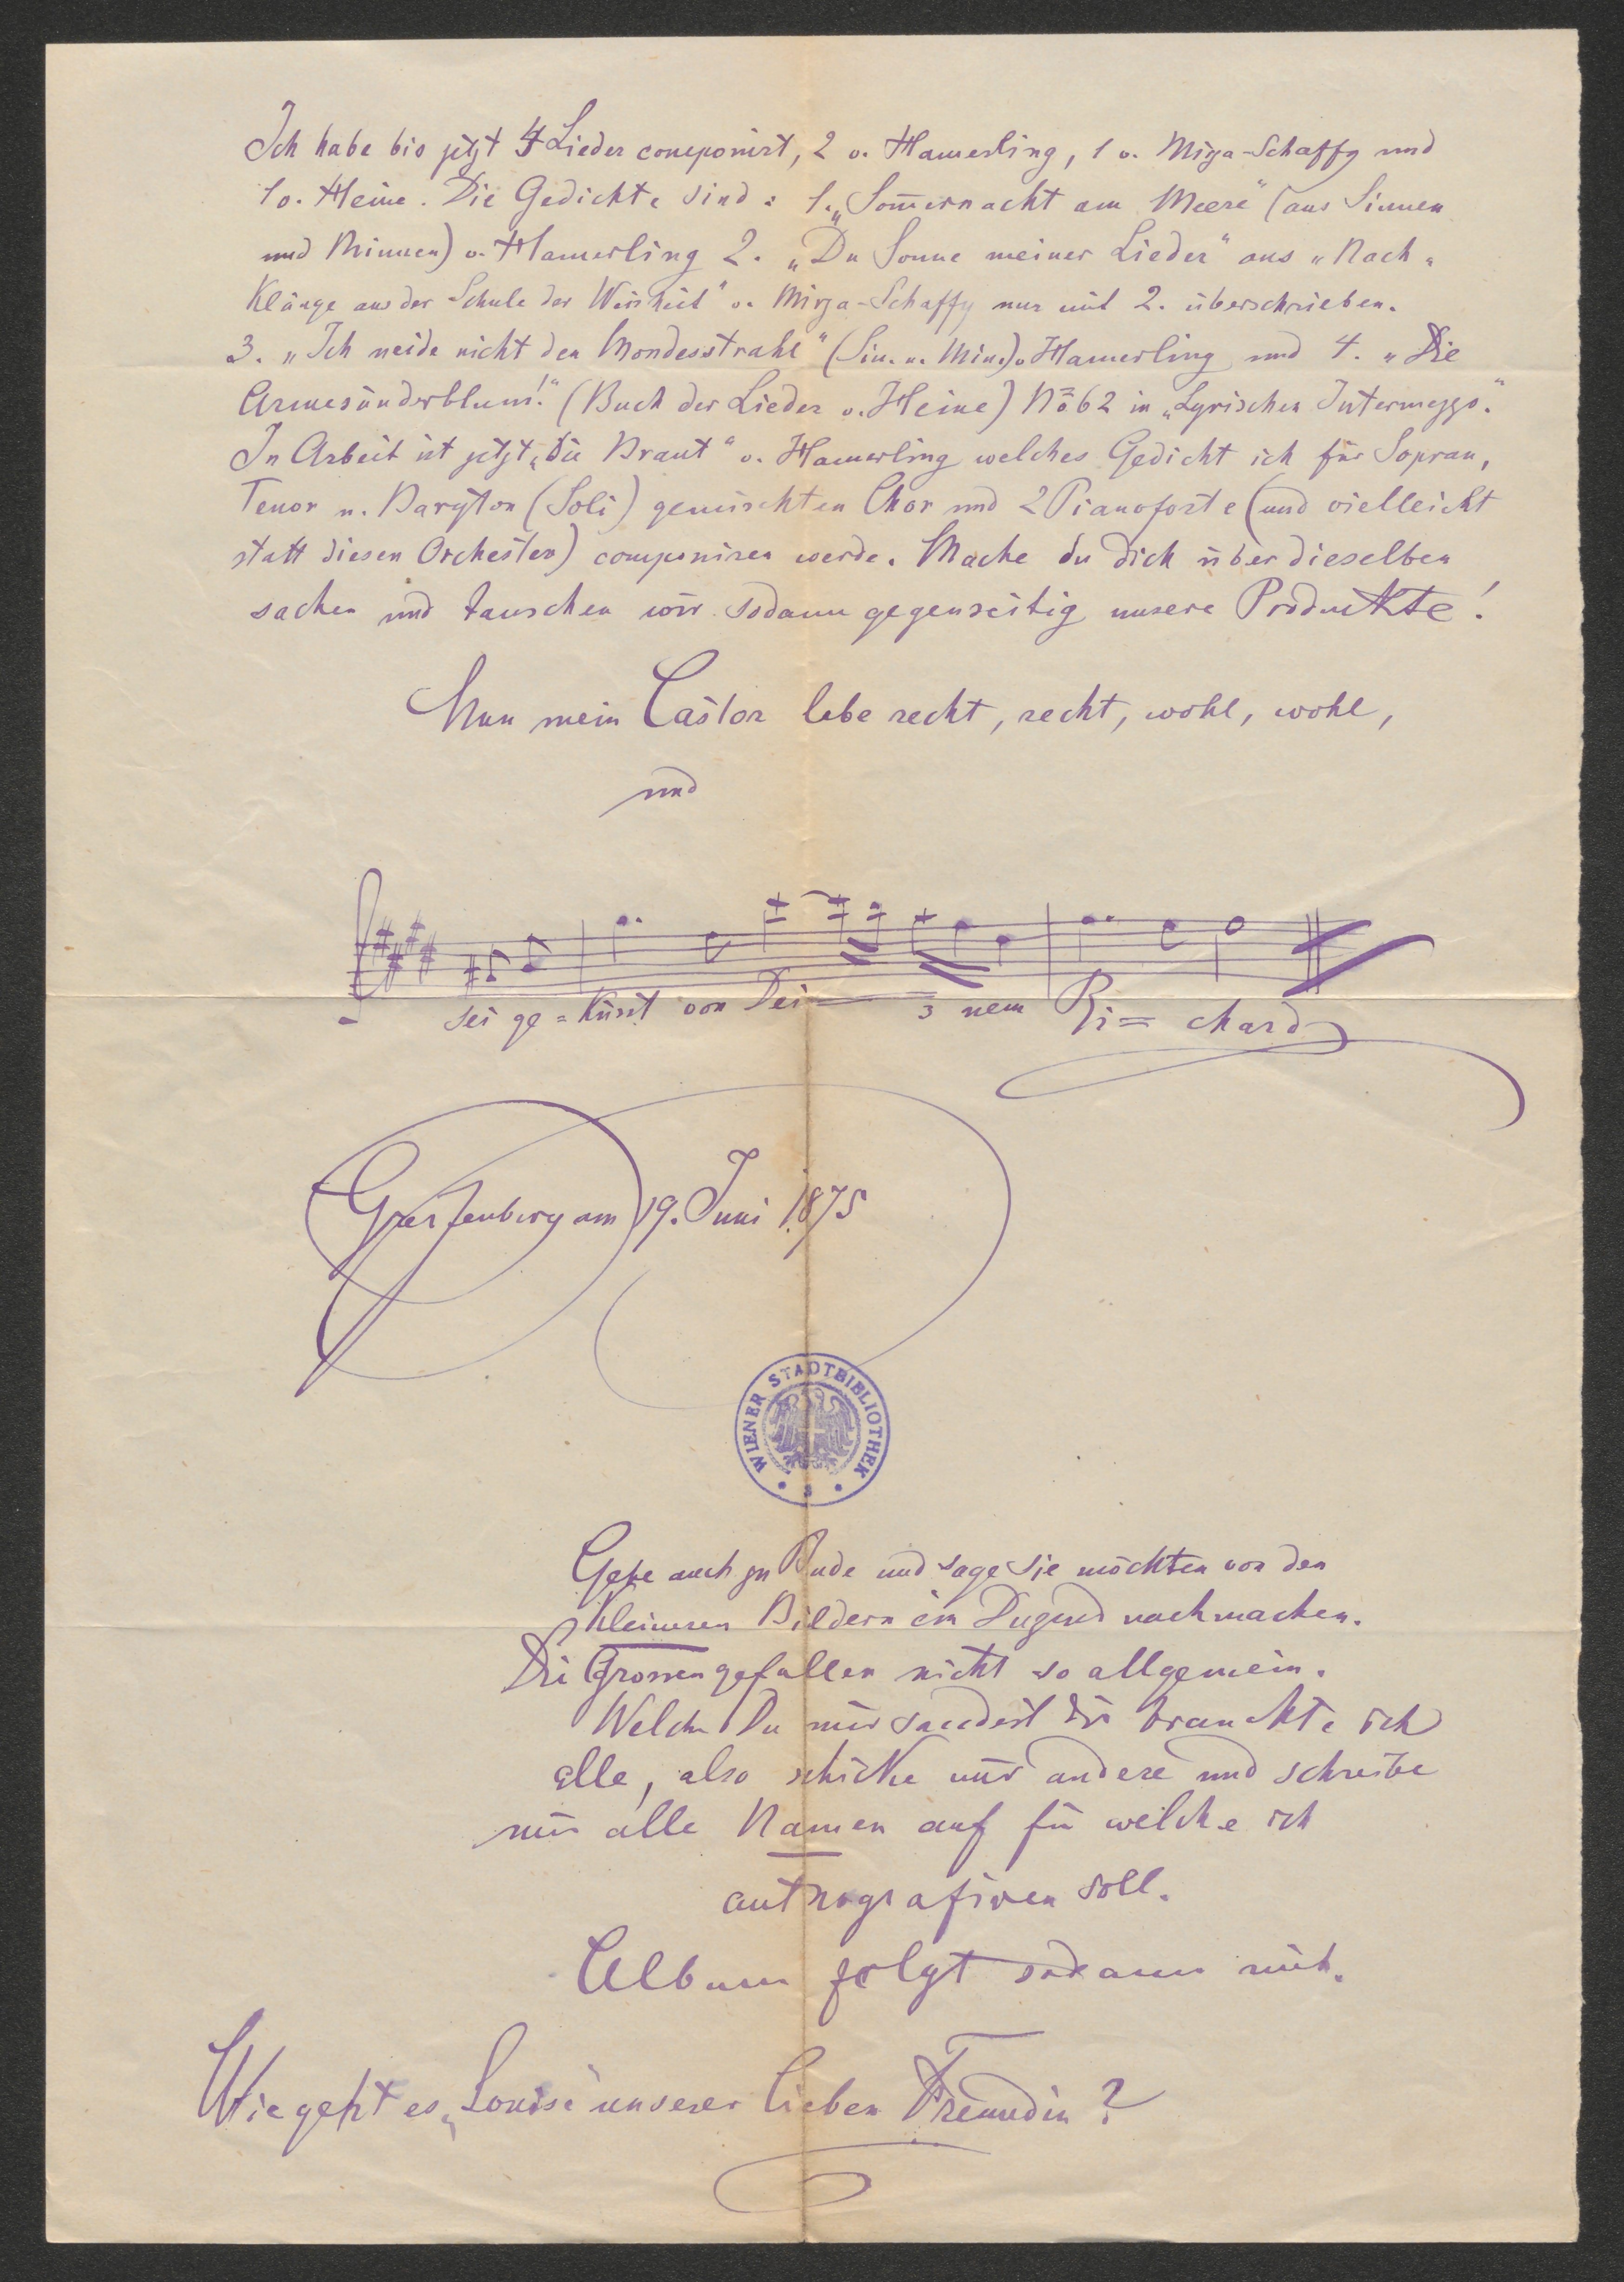 Ich habe bis jetzt 4 Lieder componirt, 2 v. Hamerling, 1 v. Mirza-Schaffy und
1 v. Heine. Die Gedichte sind: 1. „Som̅ernacht am Meere" (aus Sinnen
und Minnen) v. Hamerling 2. „Du Sonne meiner Lieder" aus „Nach„
Klänge aus der Schule der Weisheit" v. Mirza-Schaffy nur mit 2. überschrieben.
3. „Ich neide nicht den Mondesstrahl" (Sin. u. Min.) v. Hamerling und 4. „Die
Armesünderblum!" (Buch der Lieder v. Heine) No 62 in „Lyrischen Intermezzo."
In Arbeit ist jetzt „Die Braut" v. Hamerling welches Gedicht ich für Sopran,
Tenor u. Baryton (Soli) gemischten Chor und 2 Pianoforte (und vielleicht
statt diesen Orchester) componiren werde. Mache du dich über dieselben
sachen und tauschen wir sodann gegenseitig unsere Produkte!
Nun mein Castor lebe recht, recht, wohl, wohl,
und
sei ge=küsst von Dei= 3 nem Ri= chard
Graefenberg am 19. Juni 1875
WIENER STADTBIBLIOTHEK
Gehe auch zu Bude und sage sie möchten von den
Kleineren Bildern ein Dutzend nachmachen.
Die Grossen gefallen nicht so allgemein.
Welche Du mir sandest die brauchte ich
alle, also schicke mir andere und schreibe
mir alle Namen auf für welche ich
autografiren soll.
Album folgt sodann mit.
Wie geht es „Louise" unserer lieben Freundin?